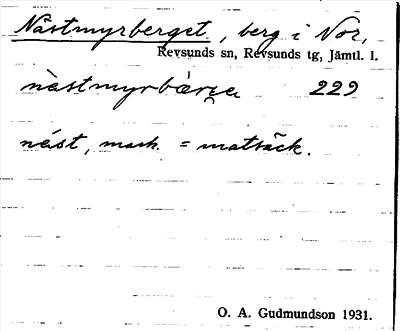 Nästmyrberget, berg i Nor,
Revsunds sn, Revsunds tg, Jämtl. l.
nästmyrbärʒe 229
näst, mask. = matsäck.
O. A. Gudmundson 1931.